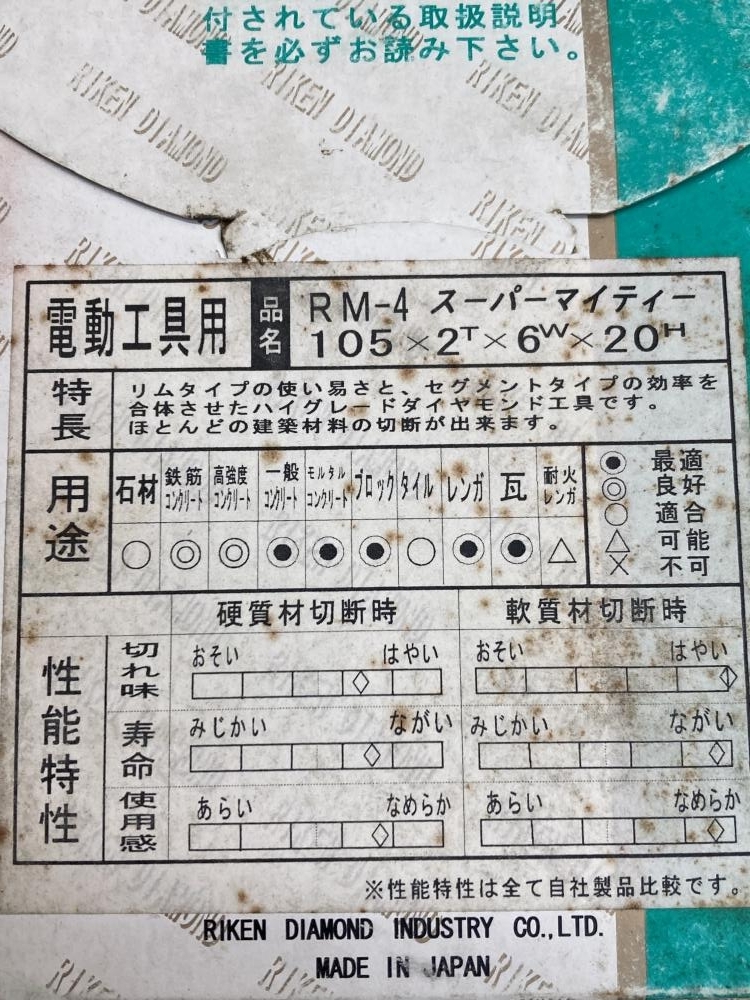 付されている取扱説明
書を必ずお読み下さい。
電動工具用 品名 RM-4 スーパーマイティー
105×2T×6W×20H
特長 リムタイプの使い易さと、セグメントタイプの効率を
合体させたハイグレードダイヤモンド工具です。
ほとんどの建築材料の切断が出来ます。
用途 石材 鉄筋コンクリート 高強度コンクリート 一般コンクリート モルタルコンクリート ブロック タイル レンガ 瓦 耐火レンガ
○ ◎ ◎ ◉ ◉ ◉ ○ ◉ ◉ △
◉ 最適
◎ 良好
○ 適合
△ 可能
× 不可
性能特性 硬質材切断時 軟質材切断時
切れ味 おそい はやい おそい はやい
寿命 みじかい ながい みじかい ながい
使用感 あらい なめらか あらい なめらか
※性能特性は全て自社製品比較です。
RIKEN DIAMOND INDUSTRY CO.,LTD.
MADE IN JAPAN
RIKEN DIAMOND